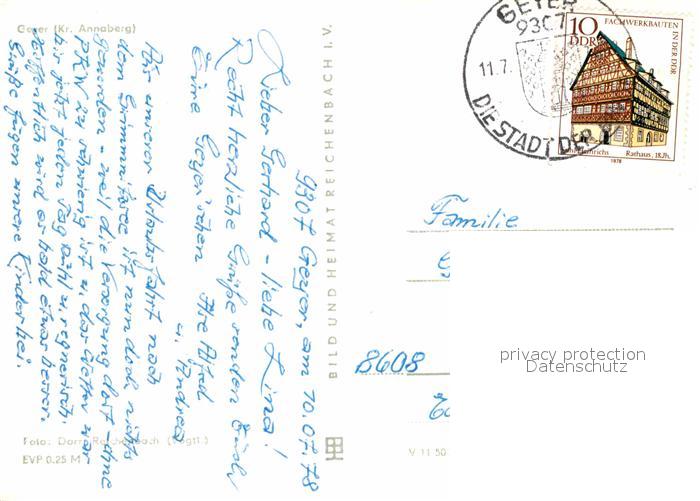 Geyer (Kr. Annaberg)
9307 Geyer, am 10.07.78
Lieber Gerhard - liebe Lina!
Recht herzliche Grüße senden Euch
Eure Geyer'schen Alfred
u. Andrea
Aus unserer Urlaubsfahrt nach
dem Grimnitzsee ist nun doch nichts
geworden - weil die Versorgung dort - ohne
PKW zu schwierig ist u. das Wetter war
bis jetzt jeden Tag kühl u. regnerisch.
Hoffentlich wird es bald etwas besser.
Grüße fügen unsere Kinder bei.
Foto: Darr, Reichenbach (Vogtl.)
EVP 0.25 M
BILD UND HEIMAT REICHENBACH I. V.
V 11 50
GEYER
9307
11.7.
DIE STADT DER
10
DDR
FACHWERKBAUTEN
IN DER DDR
Rathaus, 18. Jh.
1978
Familie
8608
privacy protection
Datenschutz